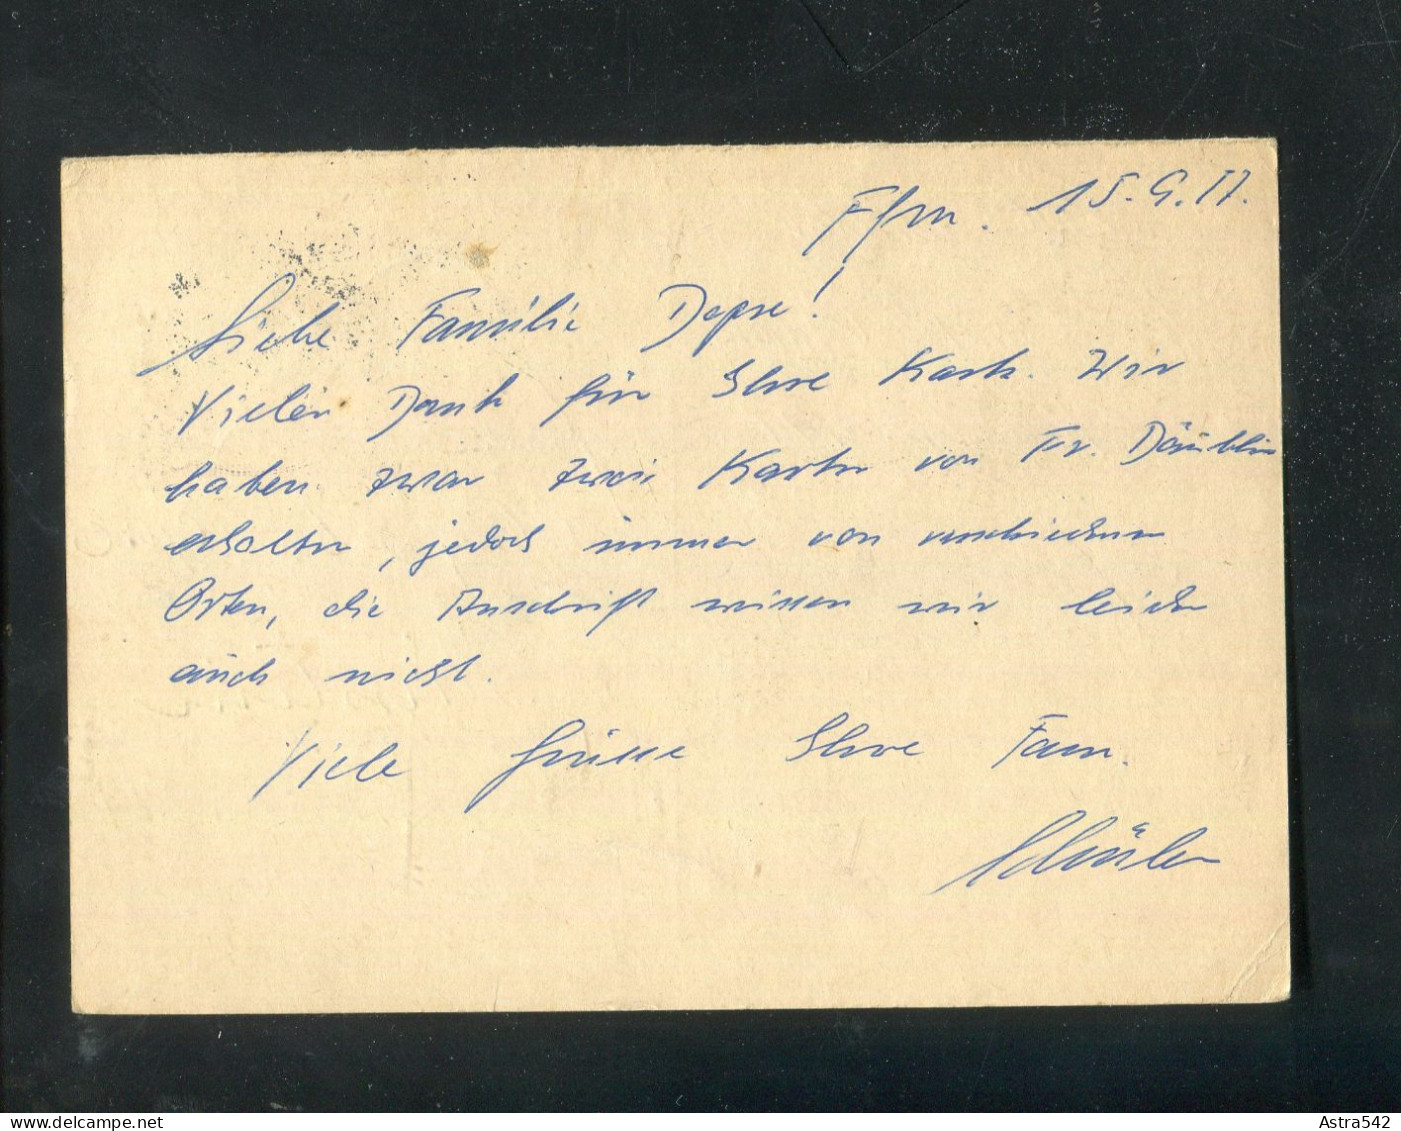 Ffm. 15.9.57.
Liebe Familie Depse!
Vielen Dank für Ihre Karte. Wir
haben zwar zwei Karten von Fr. Däublin
erhalten, jedoch immer von verschiedenen
Orten, die Anschrift wissen wir leider
auch nicht.
Viele Grüsse Ihre Fam.
Astra542